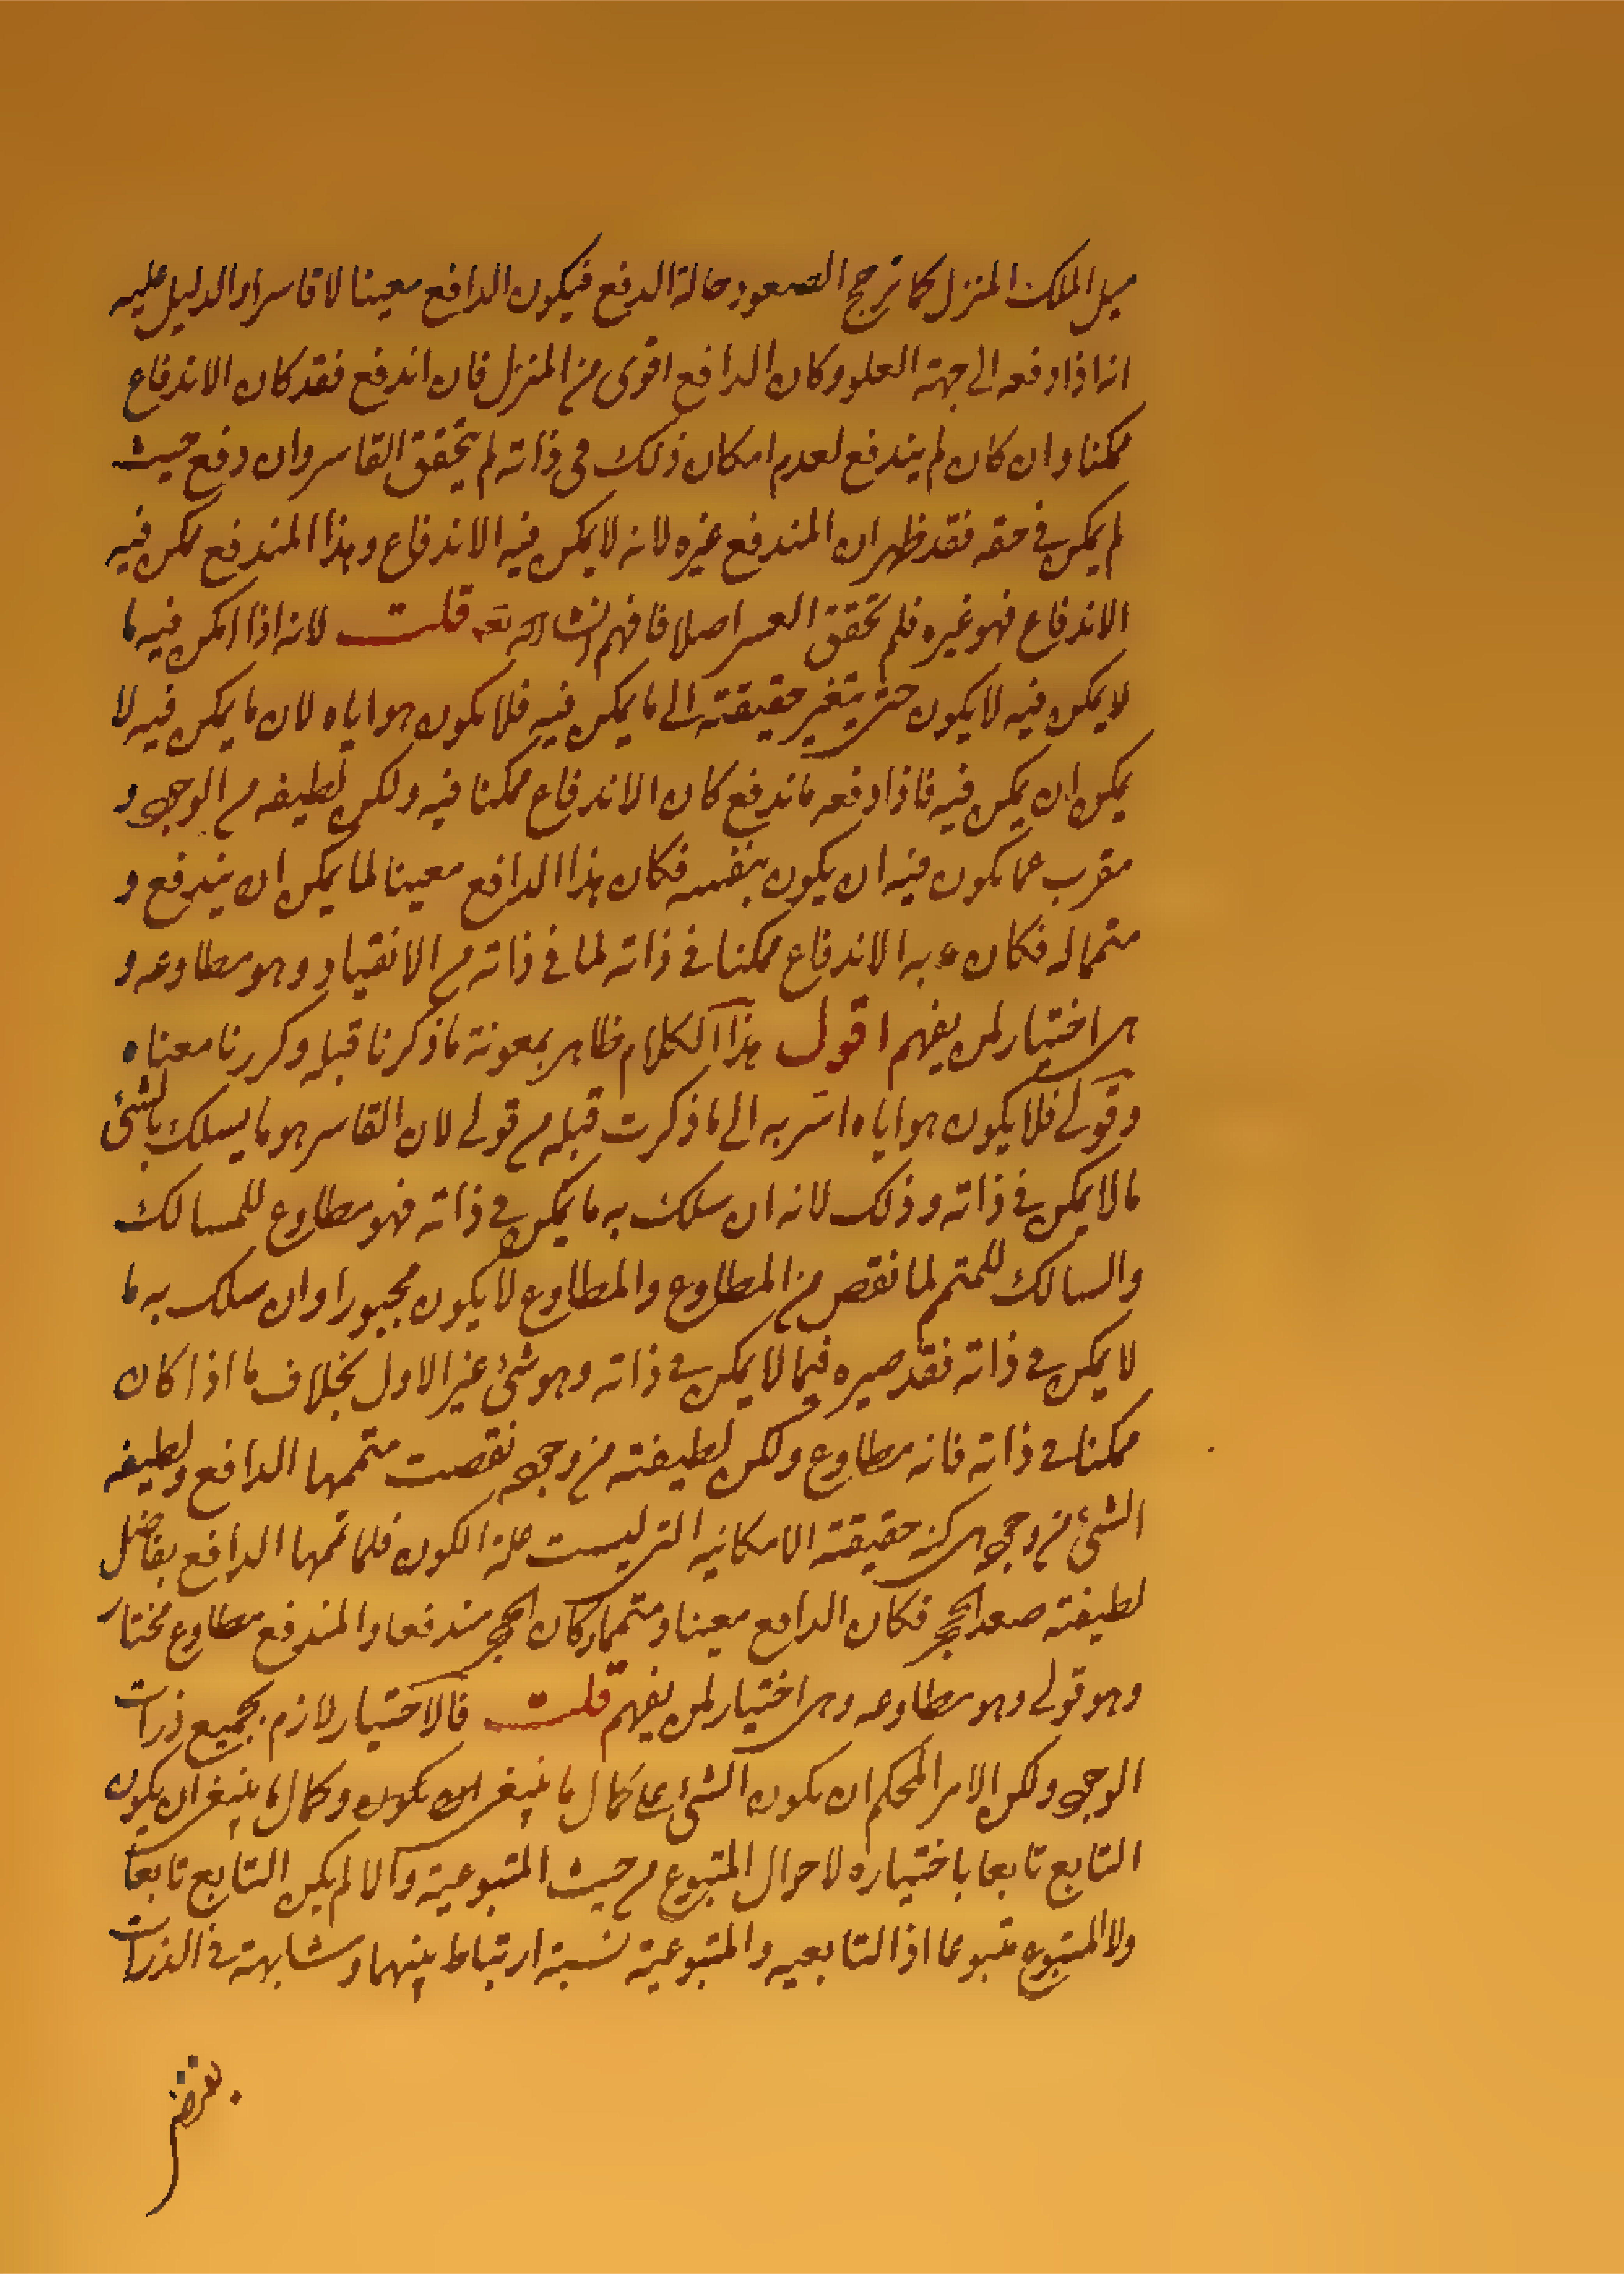 ميل الملك المنزل كما ترجح الصعود حالة الدفع فيكون الدافع معينا لا قاسرا والدليل عليه
انه اذا دفعه الى جهته العلو وكان الدافع اقوى من المنزل فان اندفع فقد كان الاندفاع
ممكنا وان كان لم يندفع لعدم امكان ذلك في ذاته لم يتحقق القاسر وان دفع حيث
لم يمكن في حقه فقد ظهر ان المندفع غيره لانه لا يمكن فيه الاندفاع وهذا المندفع يمكن فيه
الاندفاع فهو غيره فلم تحقق العسر اصلا فافهم انشاء الله تعه قلت لانه اذا امكن فيه ما
لا يمكن فيه لا يكون حتى يتغير حقيقته الى ما يمكن فيه فلا يكون هو اياه لان ما يمكن فيه لا
يمكن ان يمكن فيه فاذا دفعه فاندفع كان الاندفاع ممكنا فيه ولكن لطيفه من الوجود
مقرب عما يكون فيه ان يكون بنفسه فكان هذا الدافع معينا لما يمكن ان يندفع و
متمما له فكان به الاندفاع ممكنا في ذاته لما في ذاته من الانقياد وهو مطاوعه و
هى اختيار لمن يفهم اقول هذا الكلام ظاهر بمعونة ما ذكرنا قبله وكررنا معناه
وقولى فلا يكون هو اياه اشر به الى ما ذكرت قبله من قولى لان القاسر هو ما يسلك بالشئ
ما لا يمكن فى ذاته وذلك لانه ان سلك به ما يمكن فى ذاته فهو مطاوع للمسالك
والسالك للمتمم لما نقص من المطاوع والمطاوع لا يكون مجبورا وان سلك به ما
لا يمكن فى ذاته فقد صيره فيما لا يمكن فى ذاته وهو شئ غير الاول بخلاف ما اذا كان
ممكنا فى ذاته فانه مطاوع ولكن لطيفته من وجوه نقصت متممها الدافع ولطيفه
الشئ من وجوه هى كنه حقيقته الامكانيه التى ليست علة الكون فلما تمها الدافع بفاضل
لطيفته صعد الحجر فكان الدافع معينا ومتمما وكان الحجر مندفعا والمندفع مطاوع مختار
وهو قولى وهو مطاوعه وهى اختيار لمن يفهم قلت فالاختيار لازم بجميع ذرات
الوجود ولكن الامر المحكم ان يكون الشئ على كمال ما ينبغى ان يكون وكمال ما ينبغى ان يكون
التابع تابعا باختياره لاحوال المتبوع من حيث المتبوعية والا لم يكن التابع تابعا
ولا المتبوع متبوعا اذ التابعيه والمتبوعية نسبة ارتباط بينهما ومشابهة فى الذرات